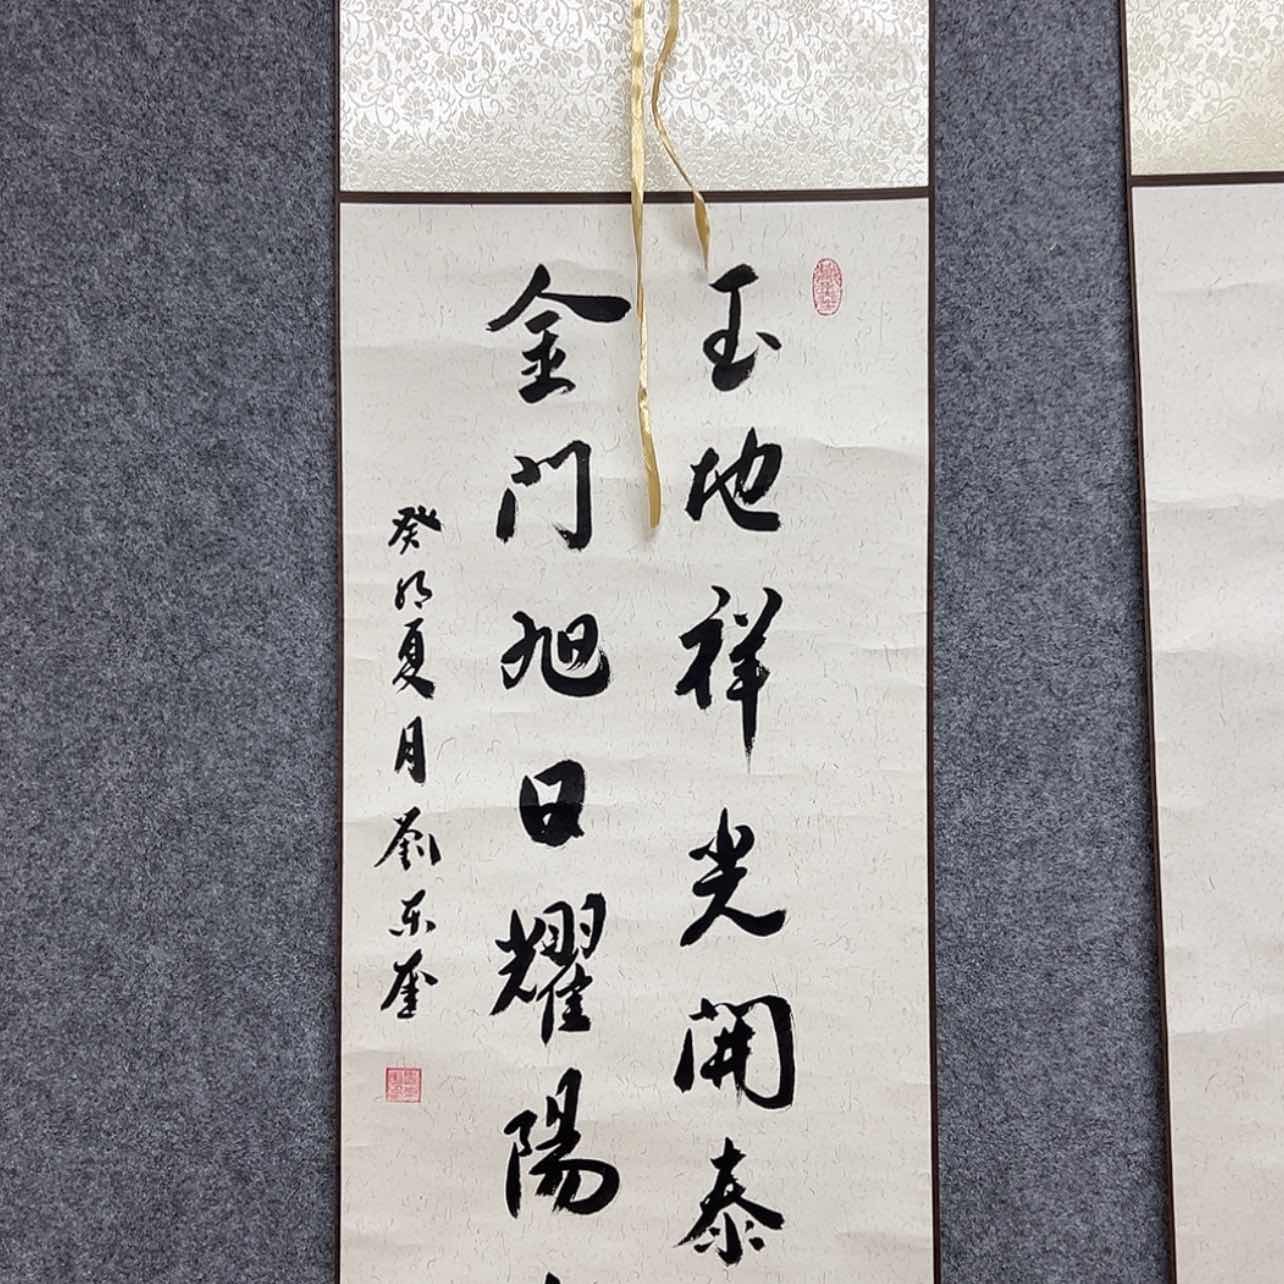 玉地祥光開泰
金门旭日耀陽
癸卯夏月劉东奎